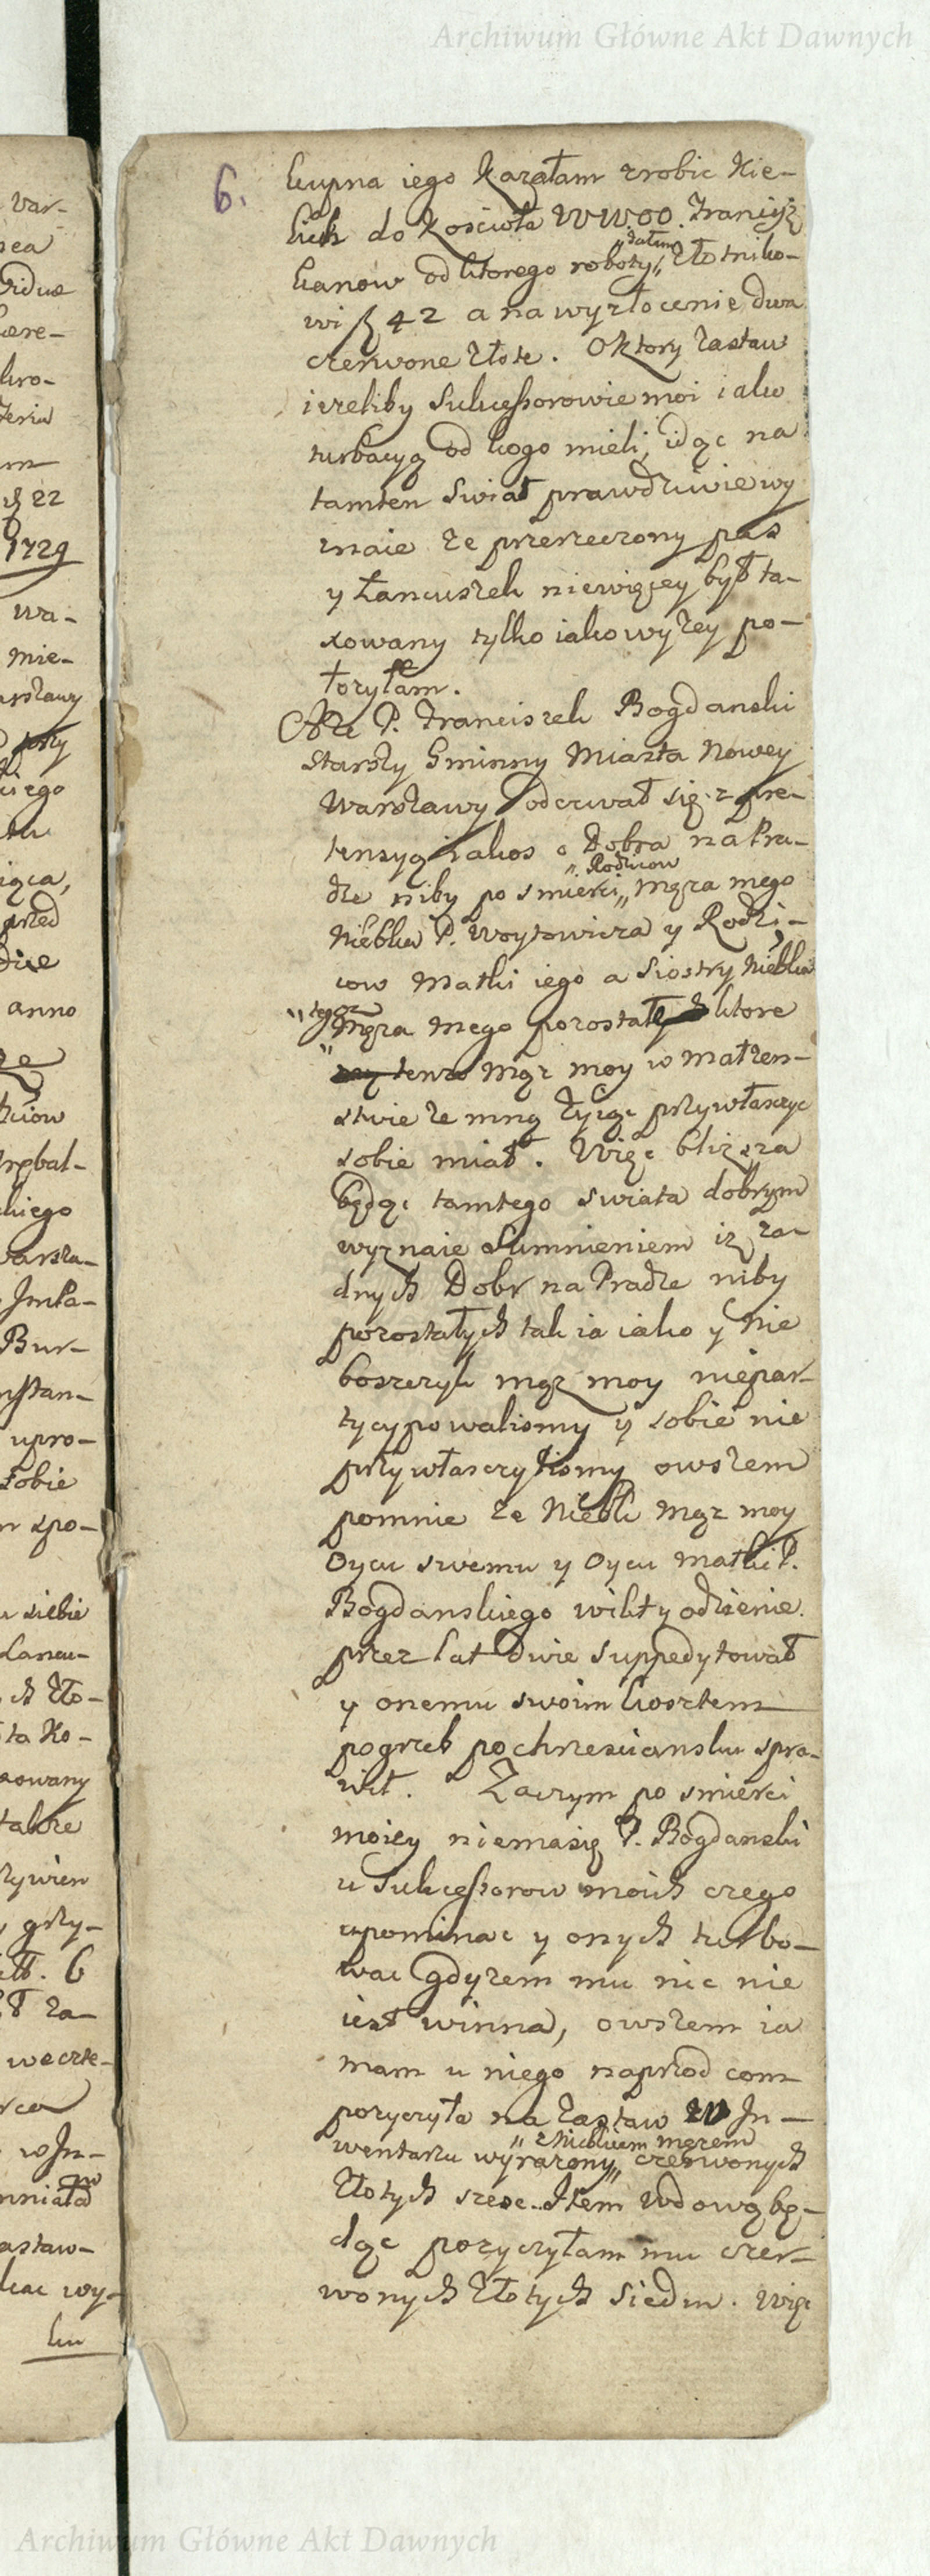 Archiwum Główne Akt Dawnych
6.
kupna iego kazałam zrobic Kie-
lich do Kościoła WW.OO. Francisz
kanow od ktorego roboty „dałam„ Złotniko-
wi ƒ 42 a na wyzłocenie dwa
czerwone złote. O ktory zastaw
iezeliby Sukcessorowie moi iako
turbacyą od kogo mieli, idąc na
tamten swiat prawdziwie wy
znaie ze przerzeczony pas
y Łancuszek niewięcey był ta-
xowany tylko iako wyzey po-
łozyłam.
Ze P. Franciszek Bogdanski
starszy Gminny Miasta Nowey
Warszawy odzewał się z pre-
tensyą iakos o Dobra na Pra-
dze niby po smierci „Rodzicow„ męza mego
Niebka P. Woytowicza y Rodzi-
cow Matki iego a Siostry Niebka
„tegoz„ Męza mego pozostałe ktore
tenze Mąz moy w małzen-
stwie ze mną zyiąc przywłaszczyc
sobie miał. Więc bliższa
będąc tamtego swiata dobrym
wyznaie Sumnieniem iz za-
dnych Dobr na Pradze niby
pozostałych tak ia iako y nie
boszczyk mąz moy niepar-
tycypowalismy y sobie nie
przywłaszczylismy owszem
pomnie ze Niebk Mąz moy
Oycu swemu y Oycu matki P.
Bogdanskiego wikt y odzienie
przez lat dwie suppedytował
y onemu swoim kosztem
pogrzeb po chrzesciansku spra-
wił. Zaczym po smierci
moiey niema się P. Bogdanski
u Sukcessorow moich czego
upominac y onych turbo-
wac gdyzem mu nic nie
iest winna, owszem ia
mam u niego naprzod com
pozyczyła na Zastaw w In-
wentarzu wyrazony „z Niebkiem męzem„ czerwonych
Złotych szesc. Item Wdową bę-
dąc pozyczyłam mu czer-
wonych Złotych siedm. Więc
Var-
22
1729
wa-
mie-
anno
Bur-
upro-
sobie
spo-
u siebie
Łancu-
Zło-
ta Ko-
xowany
takze
ƒ. 6
za-
w In-
zastaw-
wy-
ku
Archiwum Główne Akt Dawnych